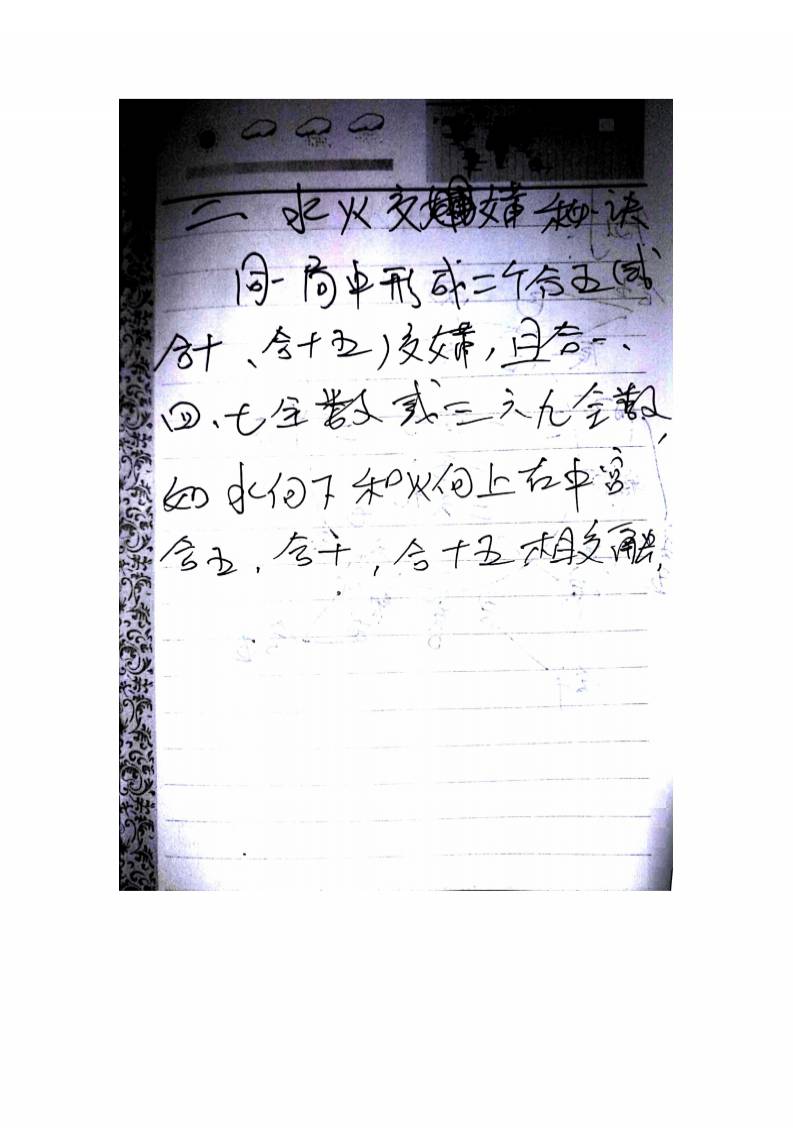 二、水火交媾秘诀
同一局中形成二个合五(或
合十、合十五)交媾,且合一、
四、七全数或三六九全数,
如水向下和火向上在中宫
合五,合十,合十五相交融,